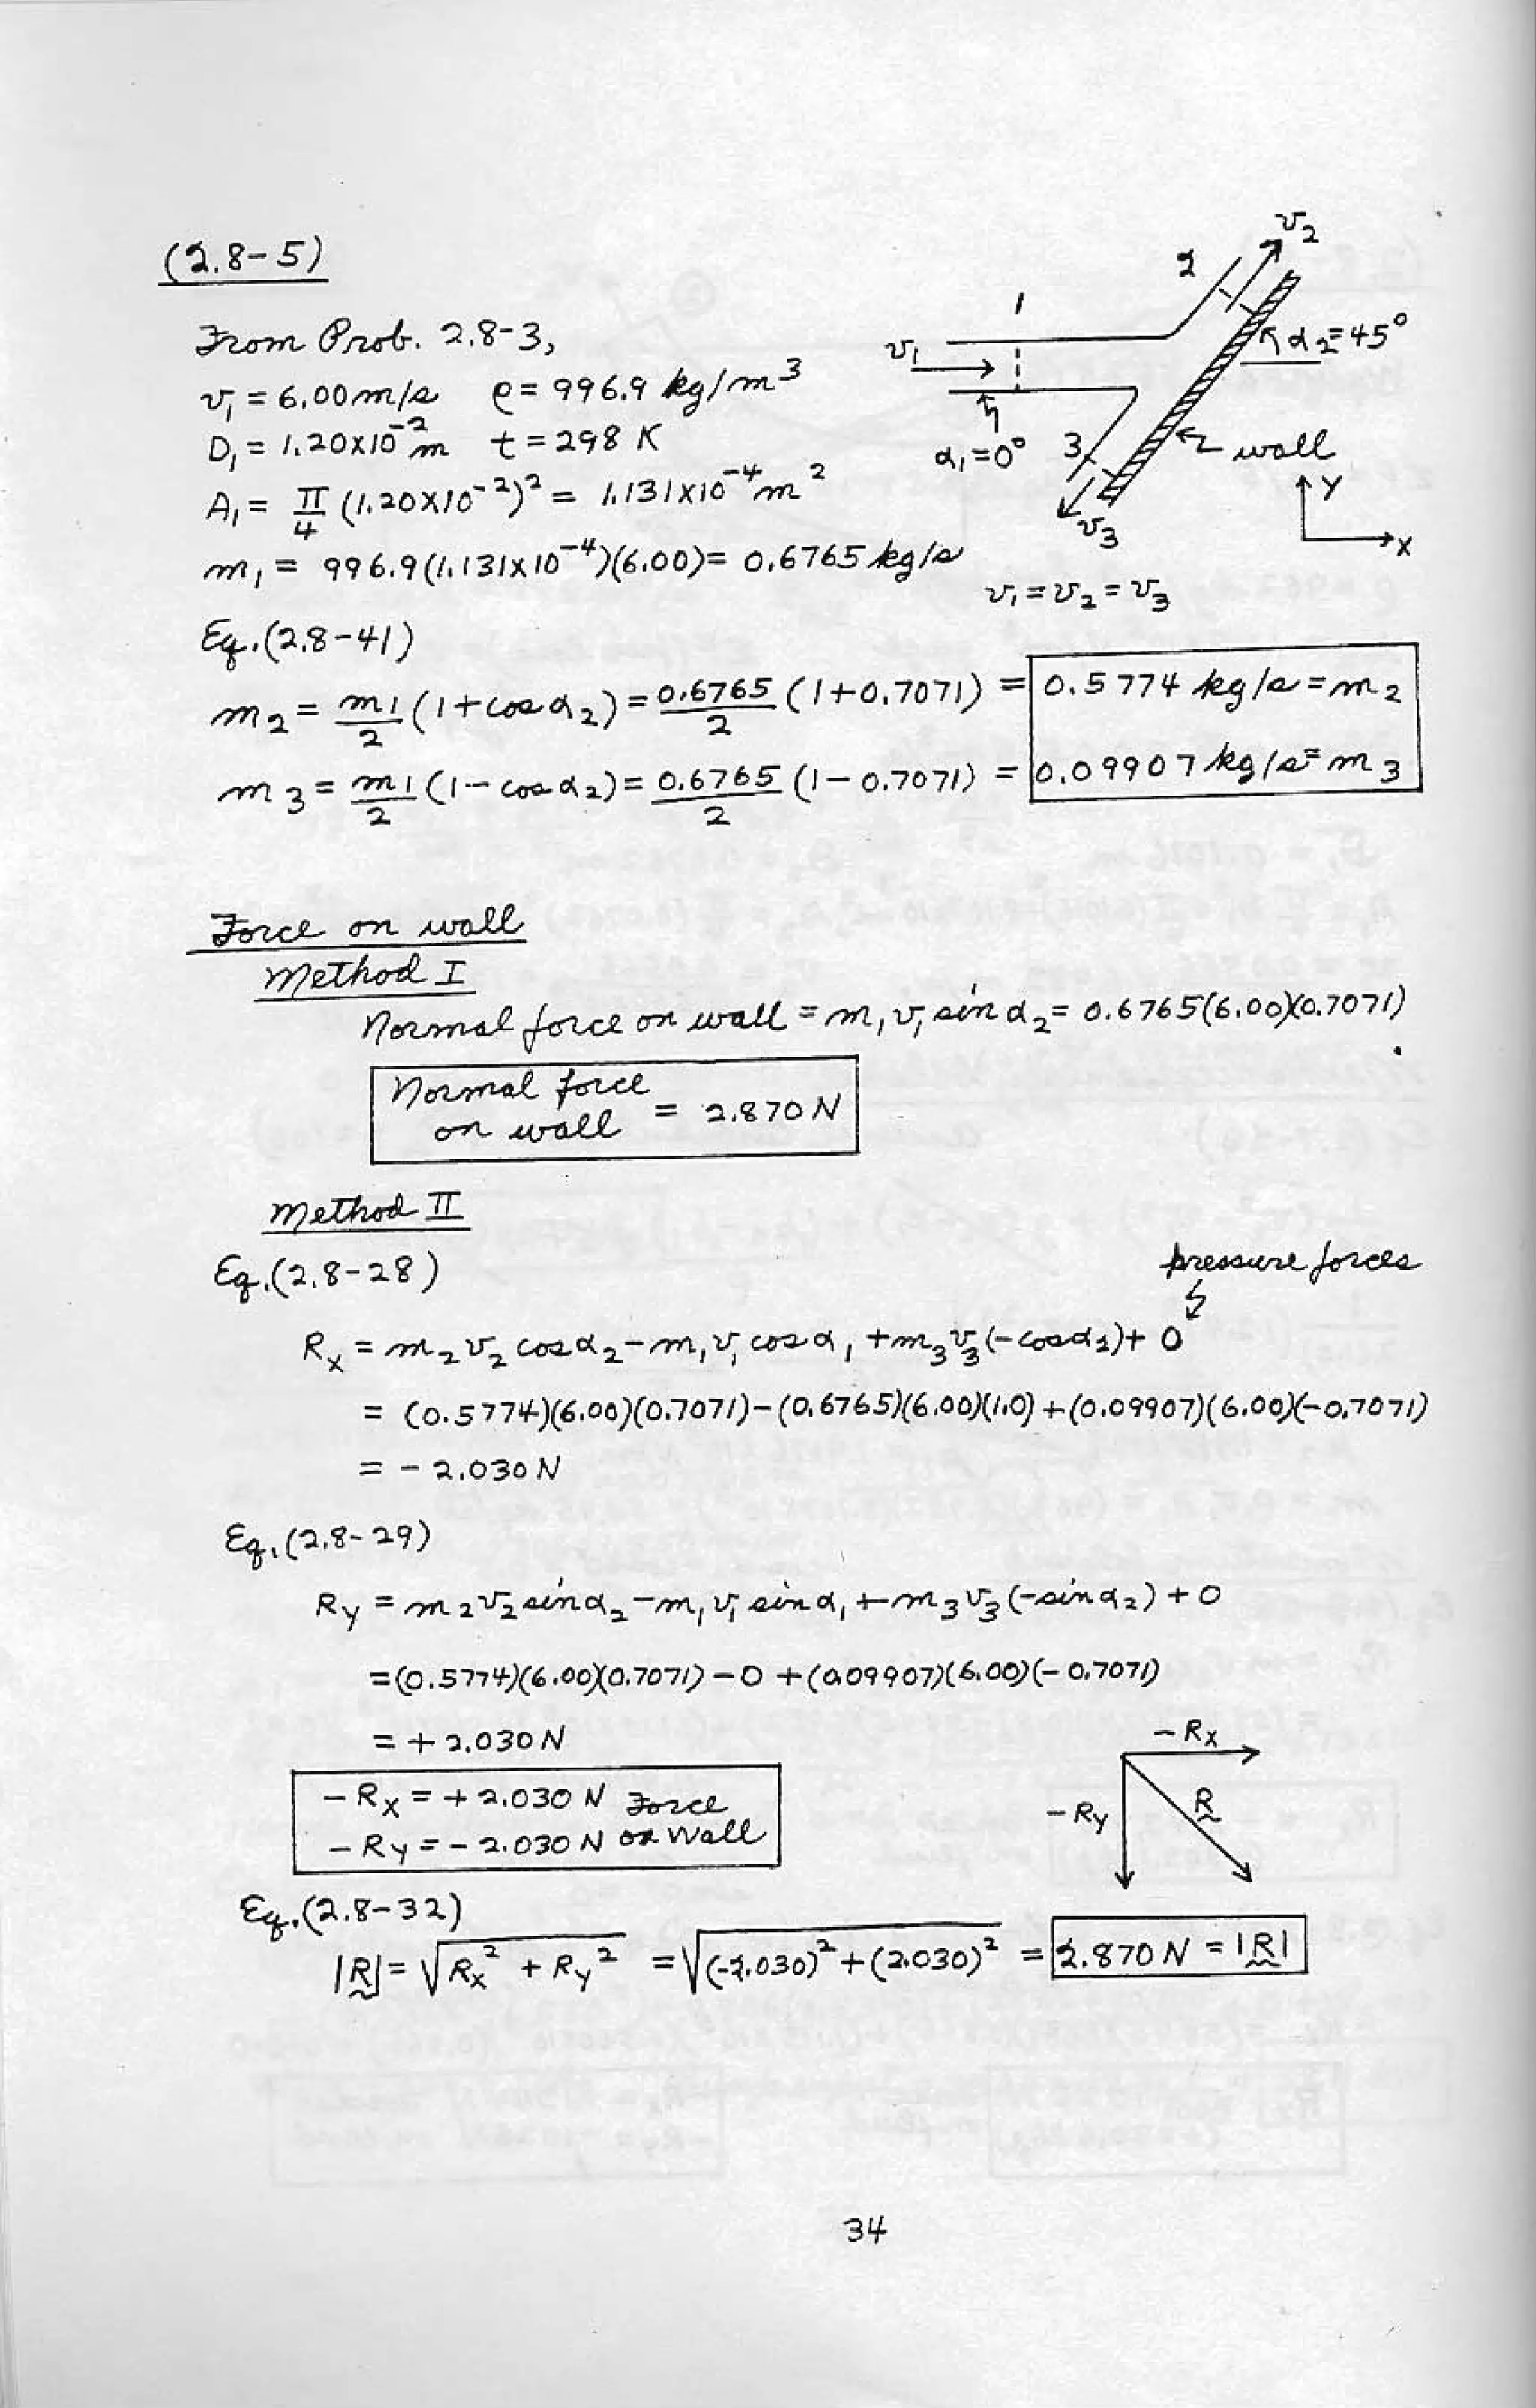 (2.8-5)
From Prob. 2.8-3,
v₁ = 6.00 m/s ρ = 996.9 kg/m³
D₁ = 1.20x10⁻² m t = 298 K
A₁ = π/4 (1.20x10⁻²)² = 1.131x10⁻⁴ m²
m₁ = 996.9(1.131x10⁻⁴)(6.00) = 0.6765 kg/s
v₂
2
1
v₁
α₂=45°
α₁=0°
3
wall
v₃
Y
X
v₁ = v₂ = v₃
Eq.(2.8-41)
m₂ = m₁/2 (1+cos α₂) = 0.6765/2 (1+0.7071) = 0.5774 kg/s = m₂
m₃ = m₁/2 (1-cos α₂) = 0.6765/2 (1-0.7071) = 0.09907 kg/s = m₃
Force on wall
Method I
Normal force on wall = m₁v₁ sin α₂ = 0.6765(6.00)(0.7071)
Normal force
on wall = 2.870 N
Method II
Eq.(2.8-28)
pressure forces
Rx = m₂v₂ cos α₂ - m₁v₁ cos α₁ + m₃v₃(-cos α₂) + 0
= (0.5774)(6.00)(0.7071) - (0.6765)(6.00)(1.0) + (0.09907)(6.00)(-0.7071)
= - 2.030 N
Eq.(2.8-29)
Ry = m₂v₂ sin α₂ - m₁v₁ sin α₁ + m₃v₃(-sin α₂) + 0
= (0.5774)(6.00)(0.7071) - 0 + (0.09907)(6.00)(-0.7071)
= + 2.030 N
- Rx = + 2.030 N Force
- Ry = - 2.030 N on Wall
- Rx
- Ry
R
Eq.(2.8-32)
|R| = √(Rx² + Ry²) = √((-2.030)² + (2.030)²) = 2.870 N = |R|
34